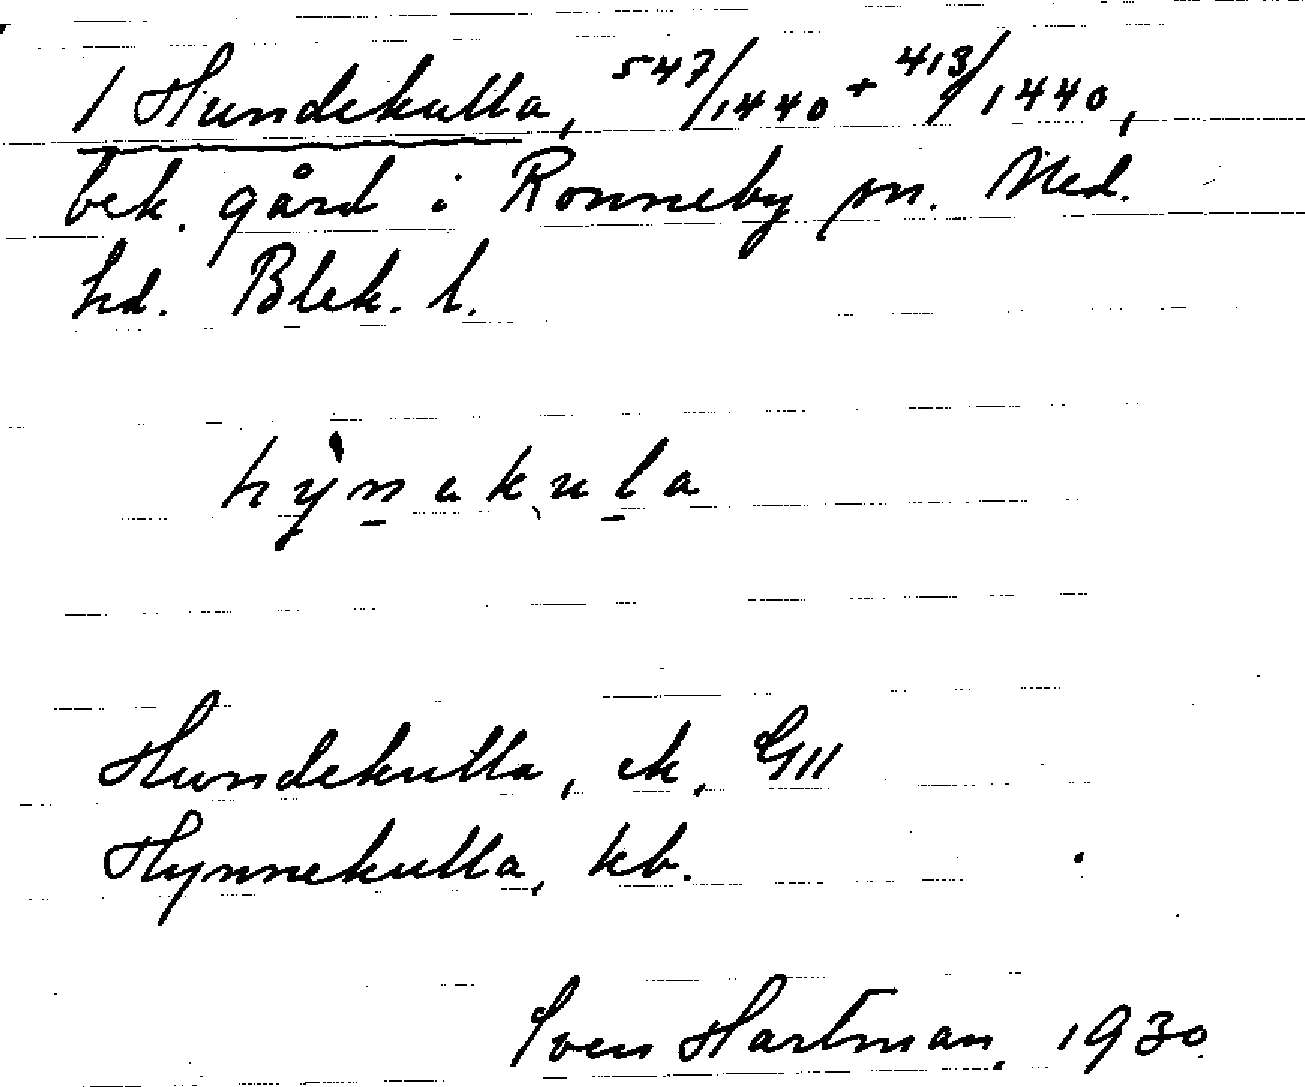 1 Hundekulla, 547/1440 + 413/1440,
bek. gård i Ronneby sn. Med.
hd. Blek. l.
hỳnakula
Hundekulla, ek, GII
Hynnekulla, kb.
Sven Hartman, 1930.